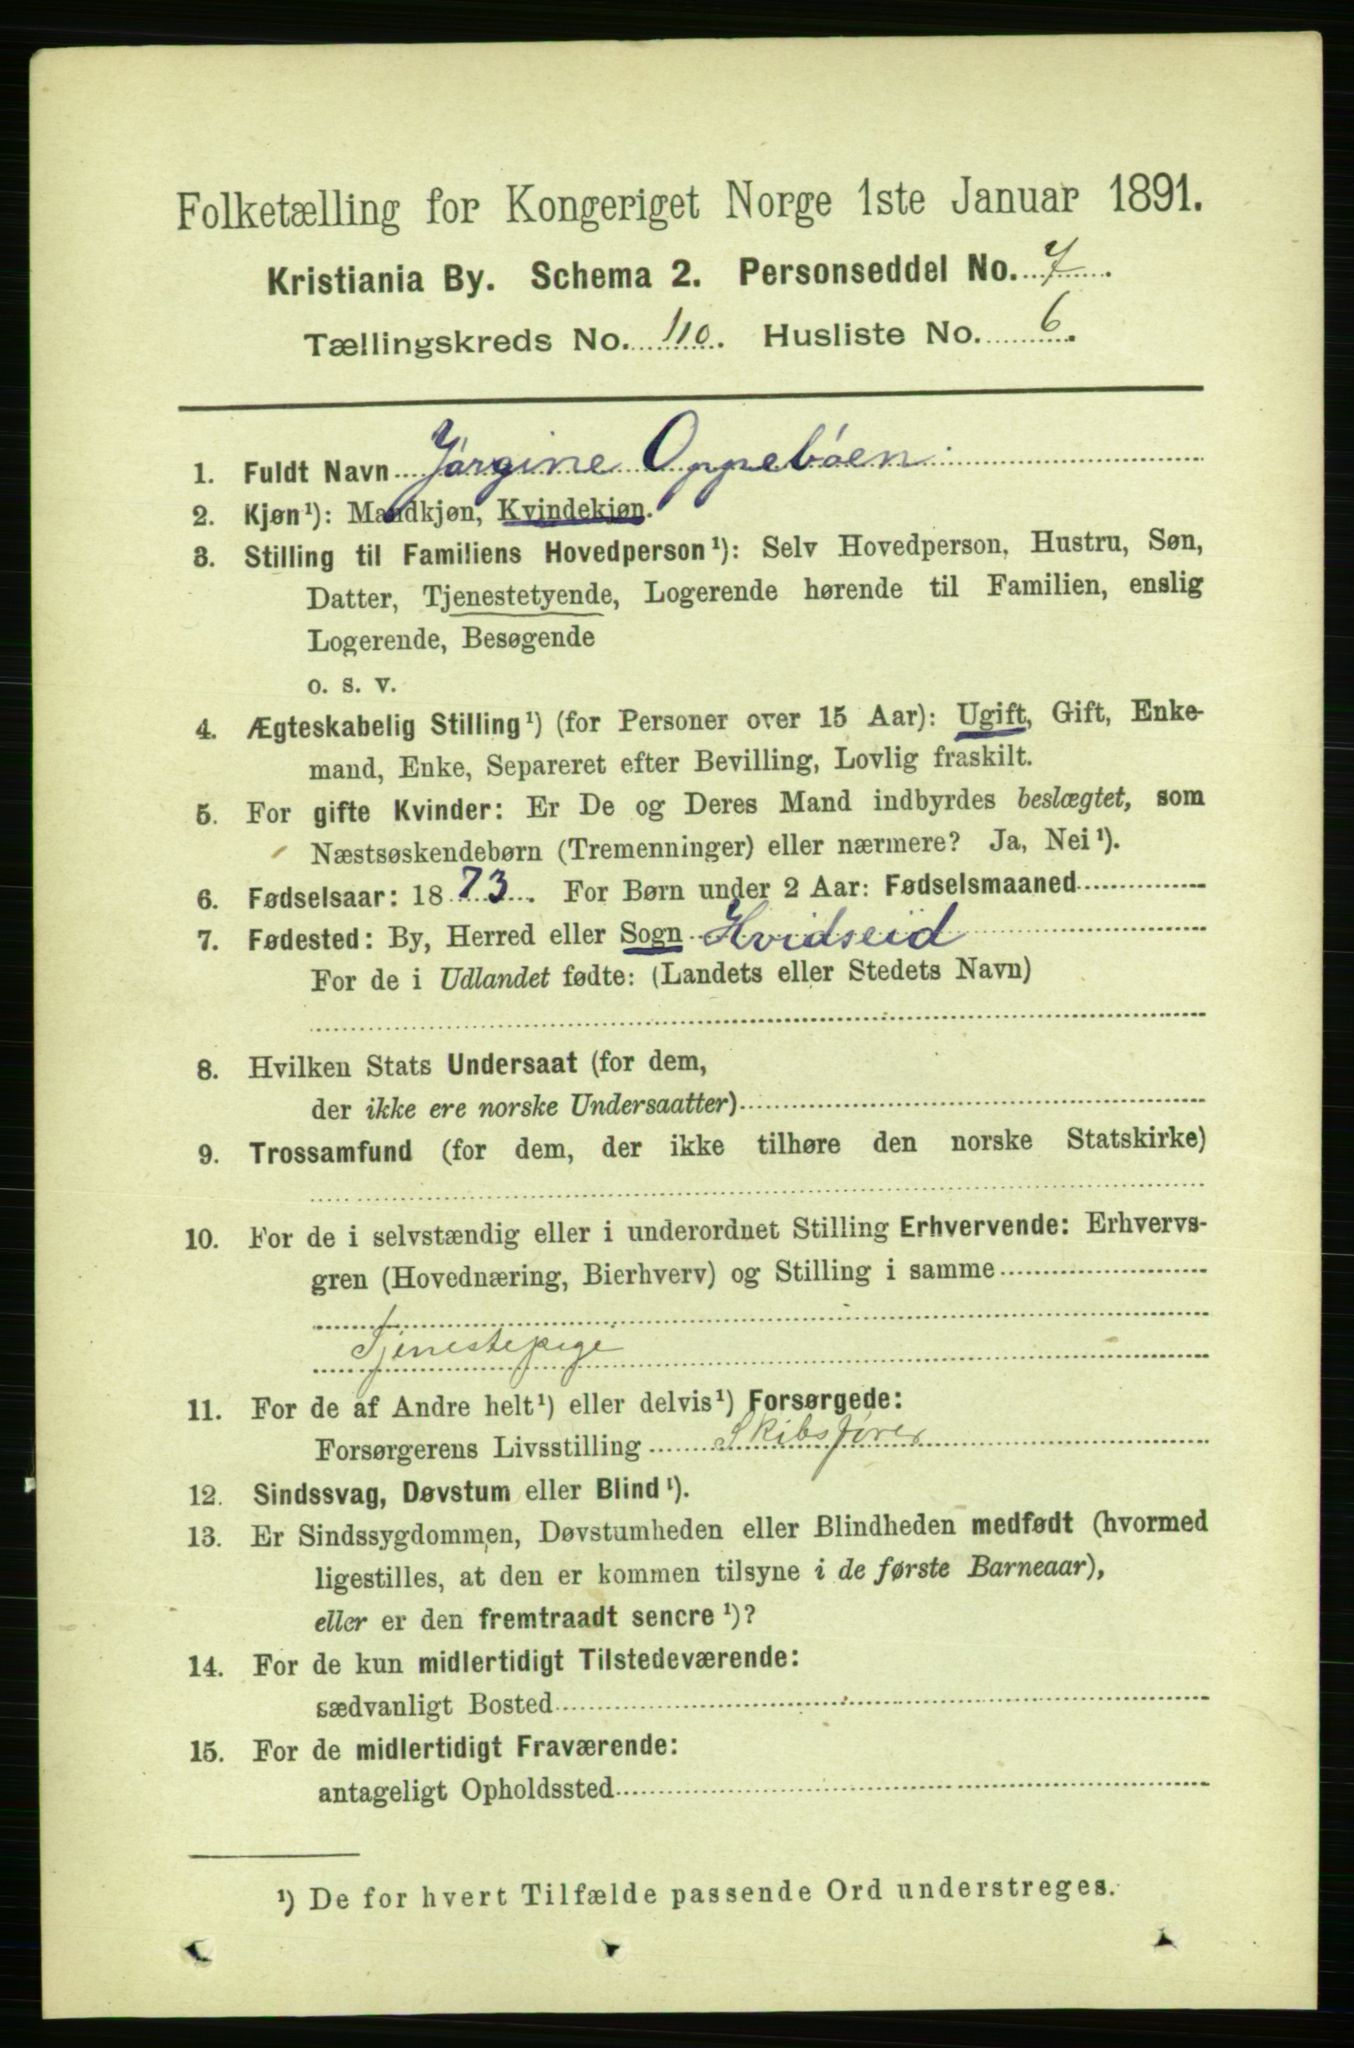 Folketælling for Kongeriget Norge 1ste Januar 1891.
Kristiania By. Schema 2. Personseddel No. 7.
Tællingskreds No. 110. Husliste No. 6.
1. Fuldt Navn Jórgine Oppebóen
2. Kjøn¹): Mandkjøn, Kvindekjøn.
3. Stilling til Familiens Hovedperson¹): Selv Hovedperson, Hustru, Søn,
Datter, Tjenestetyende, Logerende hørende til Familien, enslig
Logerende, Besøgende
o. s. v.
4. Ægteskabelig Stilling¹) (for Personer over 15 Aar): Ugift, Gift, Enke-
mand, Enke, Separeret efter Bevilling, Lovlig fraskilt.
5. For gifte Kvinder: Er De og Deres Mand indbyrdes beslægtet, som
Næstsøskendebørn (Tremenninger) eller nærmere? Ja, Nei¹).
6. Fødselsaar: 1873. For Børn under 2 Aar: Fødselsmaaned
7. Fødested: By, Herred eller Sogn Hvidseid
For de i Udlandet fødte: (Landets eller Stedets Navn)
8. Hvilken Stats Undersaat (for dem,
der ikke ere norske Undersaatter)
9. Trossamfund (for dem, der ikke tilhøre den norske Statskirke)
10. For de i selvstændig eller i underordnet Stilling Erhvervende: Erhvervs-
gren (Hovednæring, Bierhverv) og Stilling i samme
Tjenestepige
11. For de af Andre helt¹) eller delvis¹) Forsørgede:
Forsørgerens Livsstilling Skibsfører
12. Sindssvag, Døvstum eller Blind¹).
13. Er Sindssygdommen, Døvstumheden eller Blindheden medfødt (hvormed
ligestilles, at den er kommen tilsyne i de første Barneaar),
eller er den fremtraadt sencre¹)?
14. For de kun midlertidigt Tilstedeværende:
sædvanligt Bosted
15. For de midlertidigt Fraværende:
antageligt Opholdssted
¹) De for hvert Tilfælde passende Ord understreges.